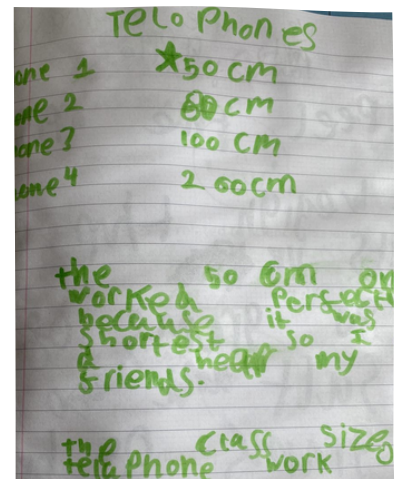 TeloPhones
one 1 ★50 cm
one 2 cm
one 3 100 cm
one 4 200cm
the 50 cm on
worked perfect
because it was
shortest so I
hear my
friends.
the class size
telaphone work